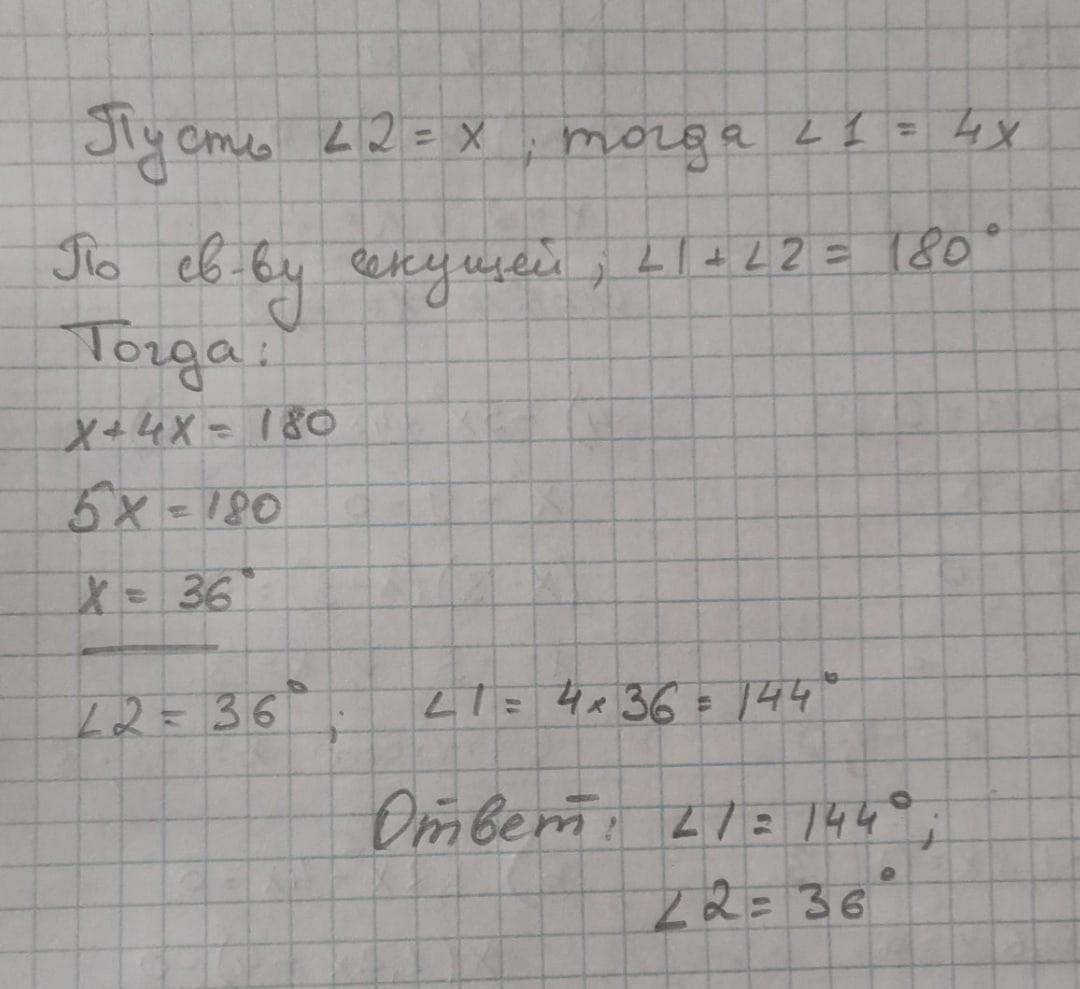 Пусть ∠2 = x ; тогда ∠1 = 4x
По св-ву секущей ; ∠1 + ∠2 = 180°
Тогда:
x + 4x = 180
5x = 180
x = 36°
∠2 = 36° ; ∠1 = 4 × 36 = 144°
Ответ: ∠1 = 144° ;
∠2 = 36°